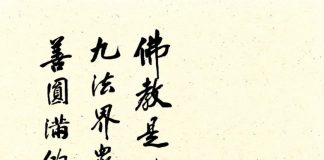 佛教是
九法界眾
善圓滿的